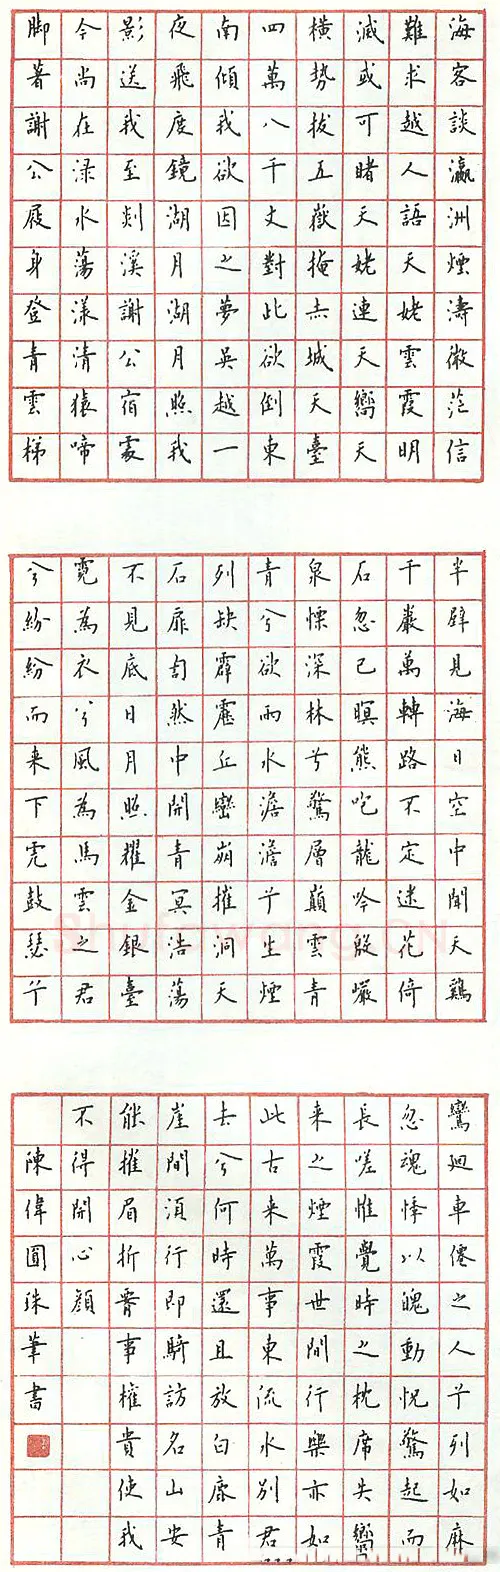 海客談瀛洲煙濤微茫信
難求越人語天姥雲霞明
滅或可睹天姥連天嚮天
橫勢拔五嶽掩赤城天臺
四萬八千丈對此欲倒東
南傾我欲因之夢吳越一
夜飛度鏡湖月湖月照我
影送我至剡溪謝公宿處
今尚在淥水蕩漾清猿啼
脚著謝公屐身登青雲梯
半壁見海日空中聞天鷄
千巖萬轉路不定迷花倚
石忽已暝熊咆龍吟殷巖
泉慄深林兮驚層巔雲青
青兮欲雨水澹澹兮生煙
列缺霹靂丘巒崩摧洞天
石扉訇然中開青冥浩蕩
不見底日月照耀金銀臺
霓為衣兮風為馬雲之君
兮紛紛而来下虎鼓瑟兮
鸞迴車僊之人兮列如麻
忽魂悸以魄動怳驚起而
長嗟惟覺時之枕席失嚮
来之煙霞世間行樂亦如
此古来萬事東流水別君
去兮何時還且放白鹿青
崖間須行即騎訪名山安
能摧眉折腰事權貴使我
不得開心顏
陳偉圓珠筆書